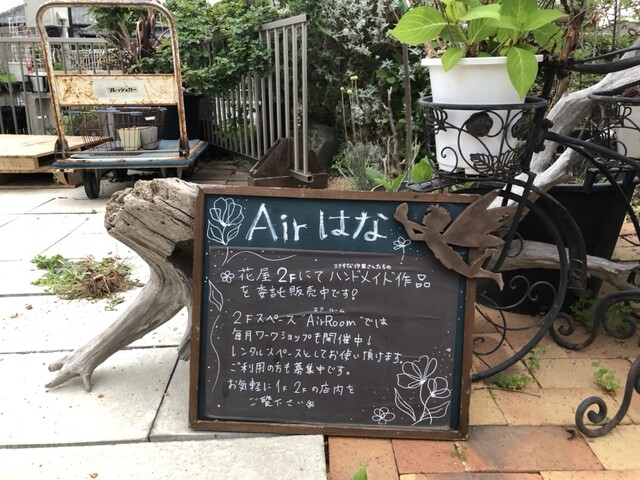 フレッシュカー
Air はな
ステキな作家さんたちの
花屋2Fにてハンドメイド作品
を委託販売中です?
エアールーム
2Fスペース"AirRoom"では
毎月ワークショップも開催中!
レンタルスペースとしてお使い頂けます
ご利用の方も募集中です。
お気軽に1F 2Fの店内を
ご覧下さい